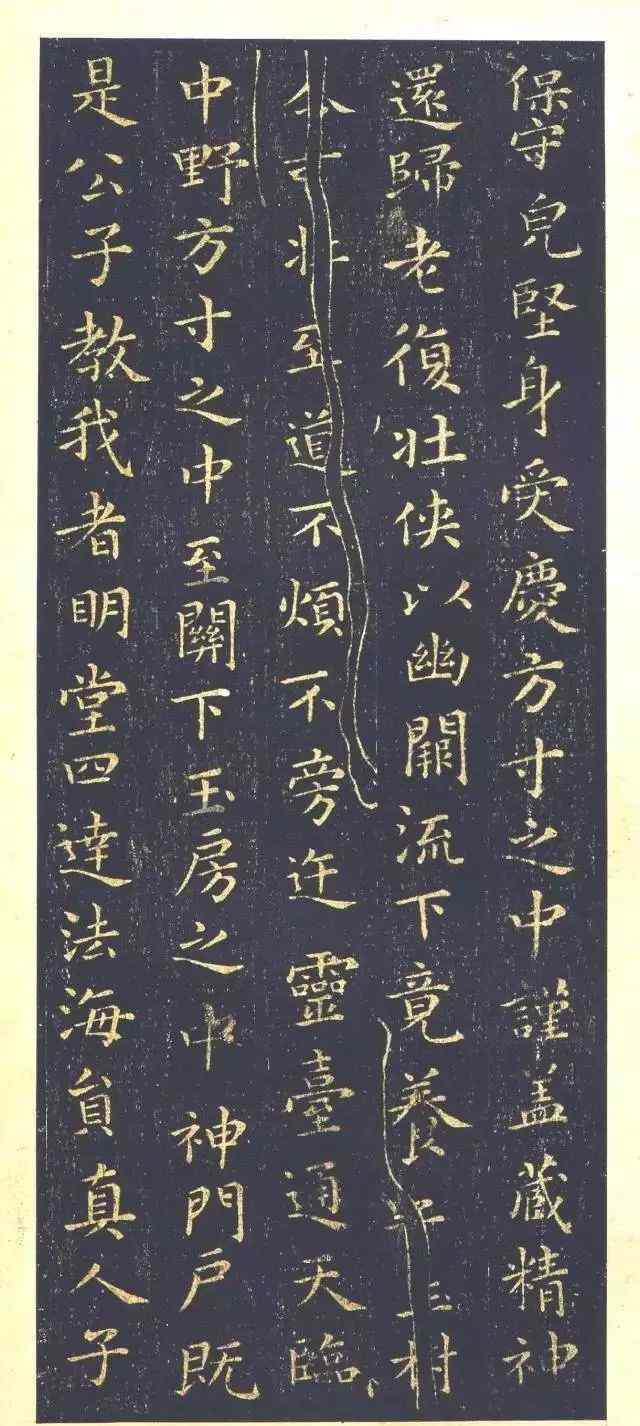 保守皃堅身受慶方寸之中謹盖蔵精神
還歸老復壮侠以幽闕流下竟養玉樹
不可杖至道不煩不旁迕靈臺通天臨
中野方寸之中至關下玉房之中神門户既
是公子教我者明堂四達法海貟真人子